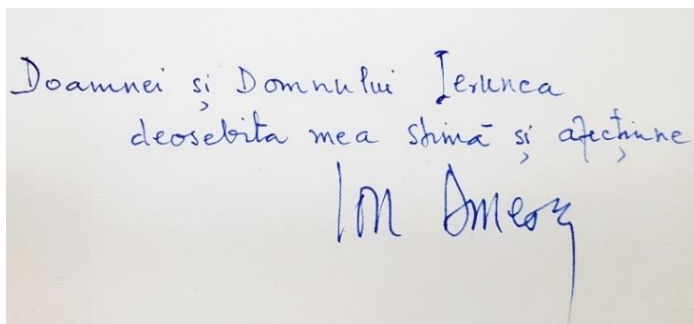 Doamnei și Domnului Ierunca
deosebita mea stimă și afecțiune
Ion